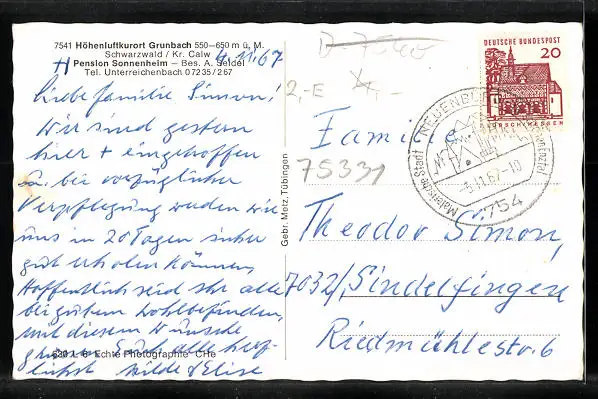 7541 Höhenluftkurort Grunbach 550–650 m ü. M.
Schwarzwald / Kr. Calw
4.11.67
Pension Sonnenheim – Bes. A. Seidel
Tel. Unterreichenbach 07235/267
Liebe Familie Simon!
Wir sind gestern
hier + eingetroffen
u. bei vorzüglicher
Verpflegung werden wir
uns in 20 Tagen sicher
gut erholen können,
Hoffentlich seid Ihr alle
bei gutem Wohlbefinden,
mit diesem Wunsche
grüssen Euch alle herz-
lichst Hilde + Elise
Echte Photographie
Gebr. Metz, Tübingen
D 7540
2,-E
75331
DEUTSCHE BUNDESPOST
20
LORSCH/HESSEN
NEUENBÜRG
Malerische Stadt
-5.11.67-10
754
Familie
Theodor Simon,
7032/Sindelfingen
Riedmühlestr. 6